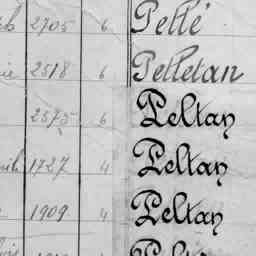 2705 6 Pellé
2518 6 Pelletan
2575 6 Peltan
1727 4 Peltan
1909 4 Peltan